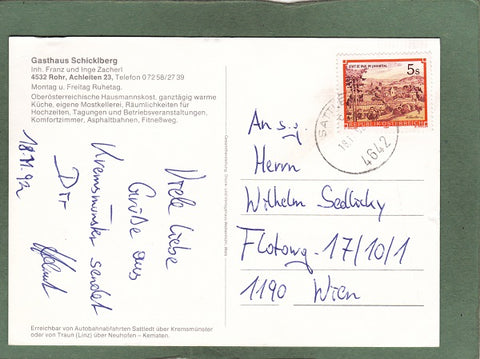 Gasthaus Schicklberg
Inh. Franz und Inge Zacherl
4532 Rohr, Achleiten 23, Telefon 0 72 58/27 39
Montag u. Freitag Ruhetag.
Oberösterreichische Hausmannskost, ganztägig warme
Küche, eigene Mostkellerei, Räumlichkeiten für
Hochzeiten, Tagungen und Betriebsveranstaltungen,
Komfortzimmer, Asphaltbahnen, Fitneßweg.
Viele liebe
Grüße aus
Kremsmünster sendet
Dir
Helmut
Erreichbar von Autobahnabfahrten Sattledt über Kremsmünster
oder von Traun (Linz) über Neuhofen – Kematen.
5s
REPUBLIK ÖSTERREICH
4642
An s.g.
Herrn
Wilhelm Sedlicky
Flotowg. 17/10/1
1190 Wien